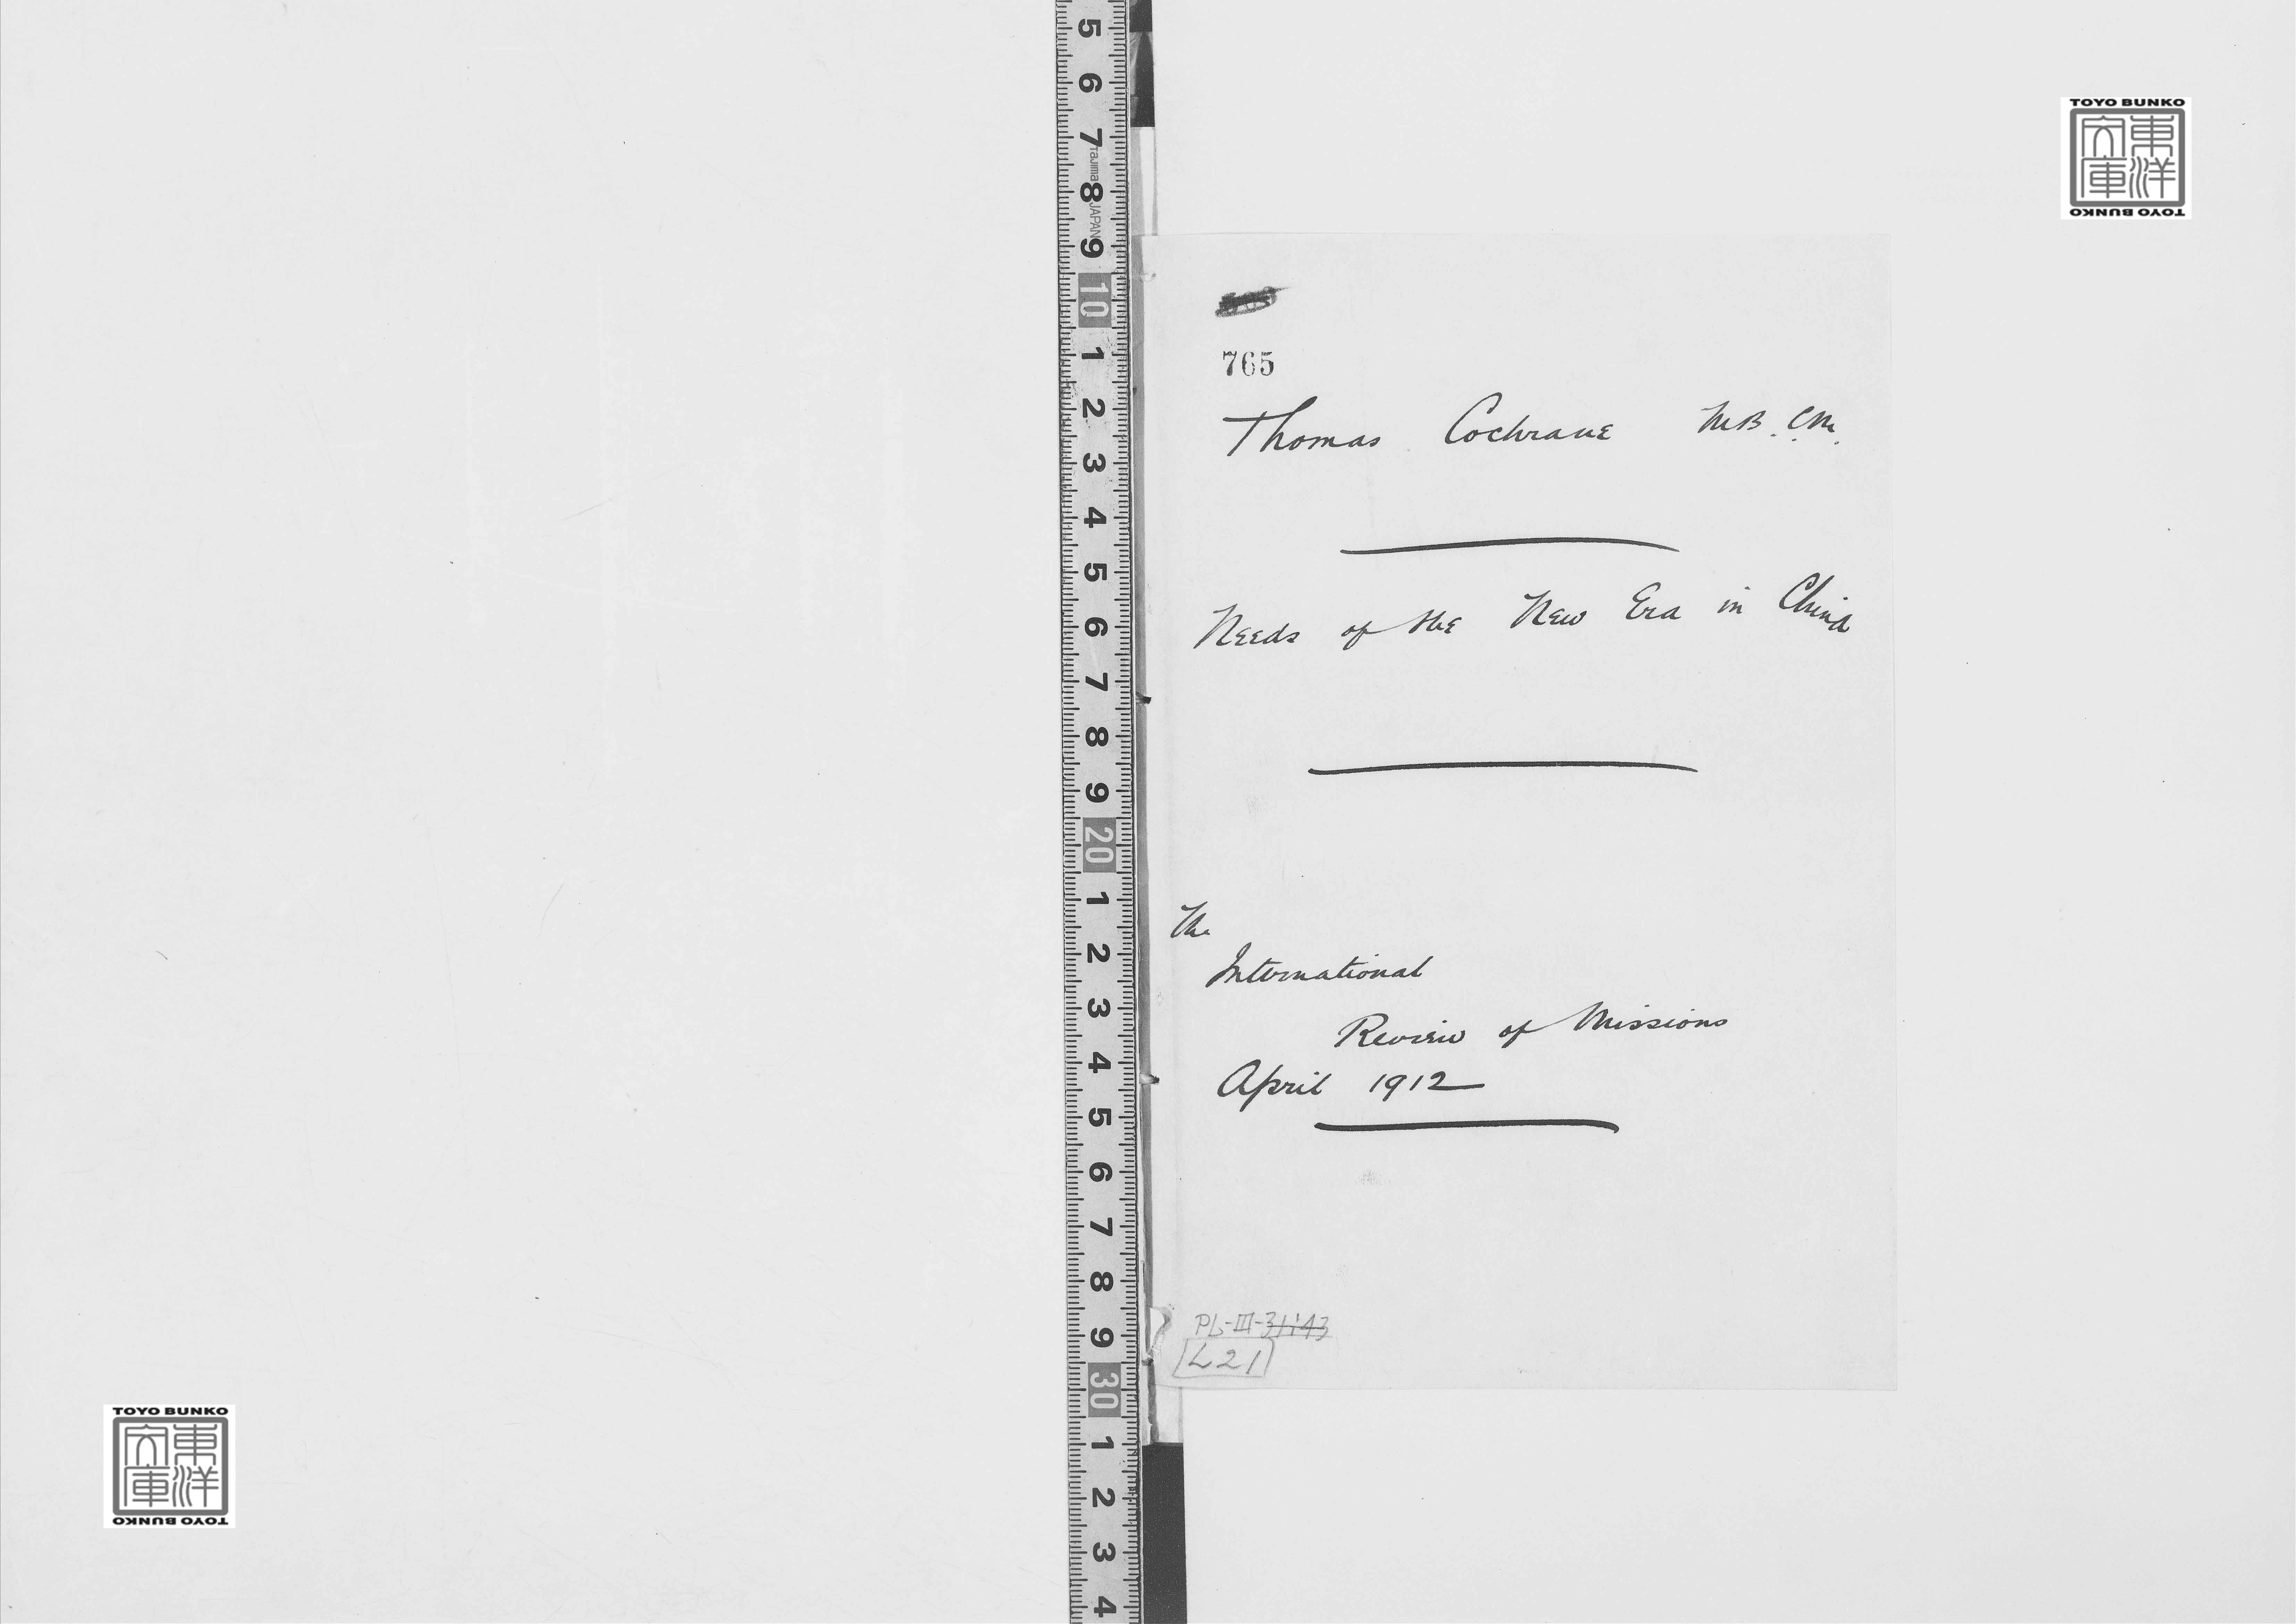 TOYO BUNKO
東洋
文庫
TOYO BUNKO
765
Thomas Cochrane M.B. C.M.
Needs of the New Era in China
The
International
Review of Missions
April 1912
PL-III-31143
L21
5 6 7 8 9 10 1 2 3 4 5 6 7 8 9 20 1 2 3 4 5 6 7 8 9 30 1 2 3 4
Tajima JAPAN
TOYO BUNKO
東洋
文庫
TOYO BUNKO